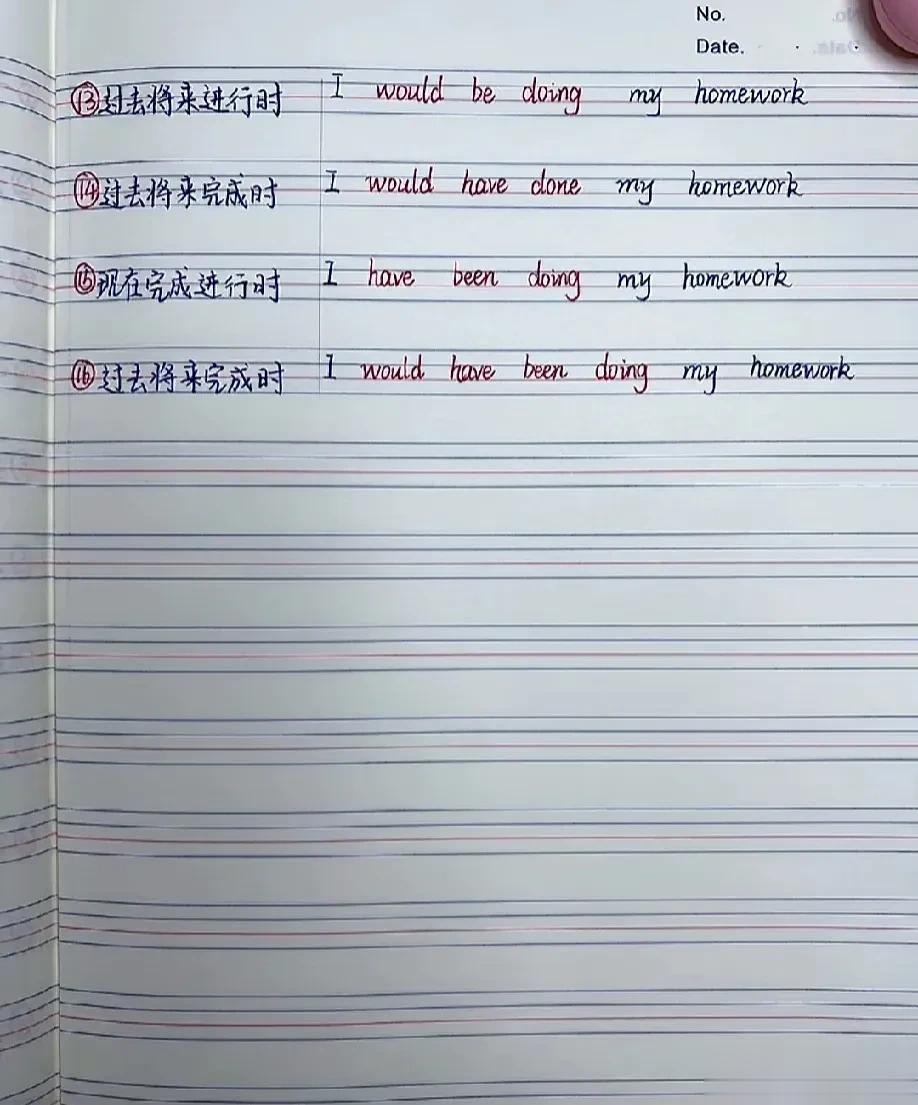 No.
Date.
⑬过去将来进行时 I would be doing my homework
⑭过去将来完成时 I would have done my homework
⑮现在完成进行时 I have been doing my homework
⑯过去将来完成时 I would have been doing my homework